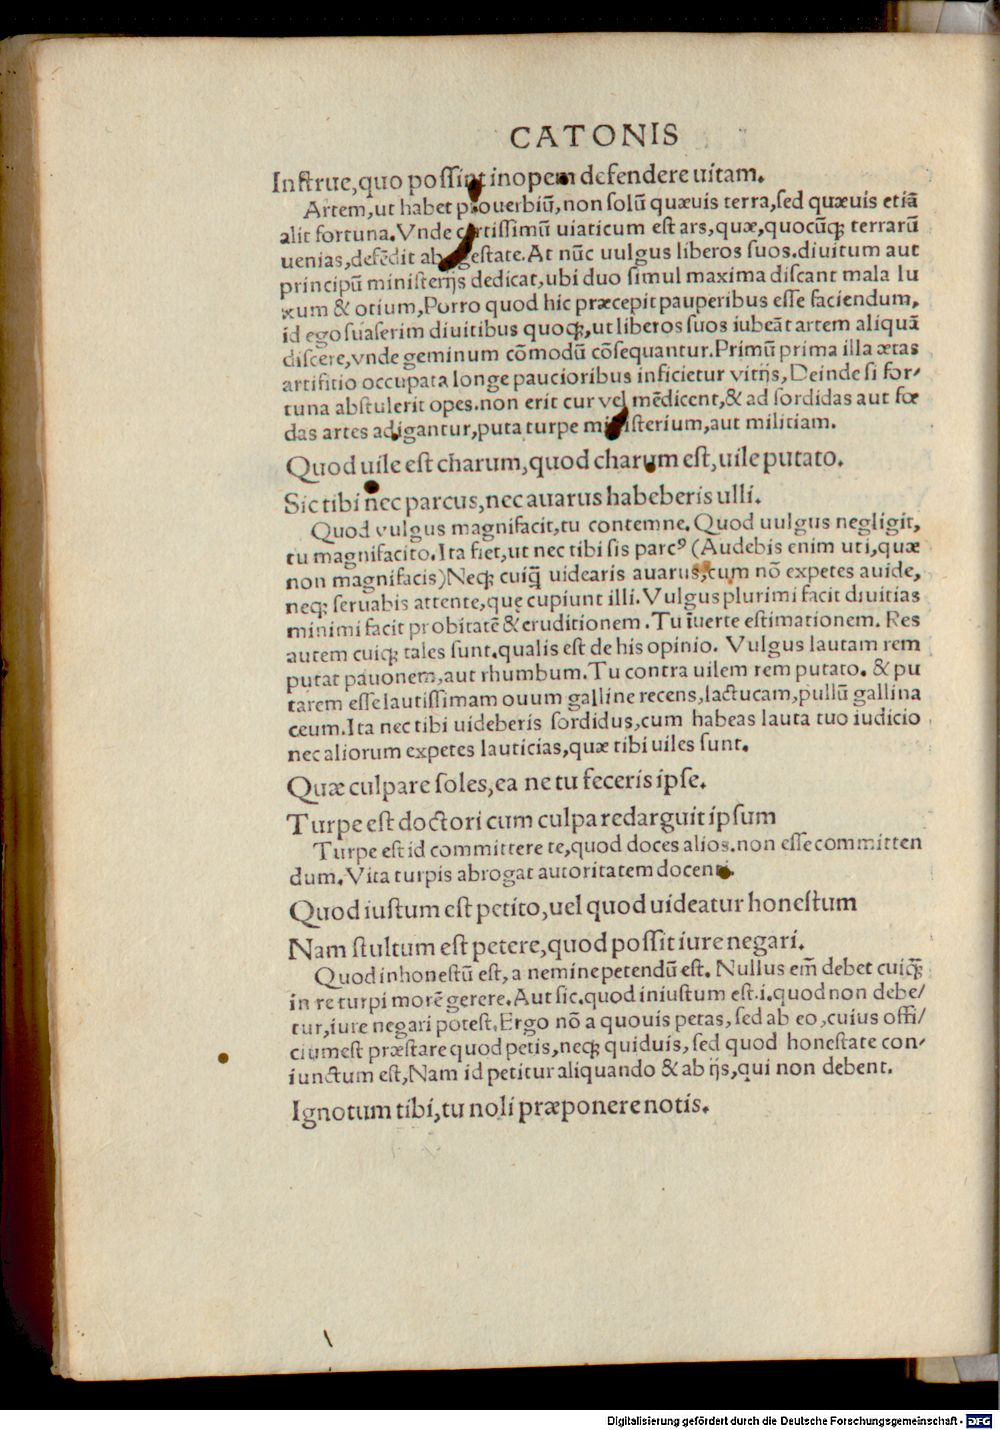 CATONIS
Inſtrue,quo poſſint inopem defendere uitam.
Artem,ut habet prouerbiū,non ſolū quæuis terra,ſed quæuis etiā
alit fortuna.Vnde certiſſimū uiaticum eſt ars,quæ,quocūqꝫ terrarū
uenias,defēdit ab egeſtate.At nūc uulgus liberos ſuos.diuitum aut
principū miniſterijs dedicat,ubi duo ſimul maxima diſcant mala lu
xum & otium,Porro quod hic præcepit pauperibus eſſe faciendum,
id ego ſuaſerim diuitibus quoqꝫ,ut liberos ſuos iubeāt artem aliquā
diſcere,vnde geminum cōmodū cōſequantur.Primū prima illa ætas
artifitio occupata longe paucioribus inficietur vitijs,Deinde ſi for⸗
tuna abſtulerit opes.non erit cur vel mēdicent,& ad ſordidas aut fœ
das artes adigantur,puta turpe miniſterium,aut militiam.
Quod uile eſt charum,quod charum eſt,uile putato.
Sic tibi nec parcus,nec auarus habeberis ulli.
Quod vulgus magnifacit,tu contemne.Quod uulgus negligit,
tu magnifacito.Ita fiet,ut nec tibi ſis parcꝰ (Audebis enim uti,quæ
non magnifacis)Neqꝫ cuiq̄ uidearis auarus,cum nō expetes auide,
neqꝫ ſeruabis attente,quę cupiunt illi.Vulgus plurimi facit diuitias
minimi facit probitatē & eruditionem.Tu īuerte eſtimationem.Res
autem cuiqꝫ tales ſunt.qualis eſt de his opinio. Vulgus lautam rem
putat pauonem,aut rhumbum.Tu contra uilem rem putato. & pu
tarem eſſe lautiſſimam ouum galline recens,lactucam,pullū gallina
ceum.Ita nec tibi uideberis ſordidus,cum habeas lauta tuo iudicio
nec aliorum expetes lauticias,quæ tibi uiles ſunt.
Quæ culpare ſoles,ea ne tu feceris ipſe.
Turpe eſt doctori cum culpa redarguit ipſum
Turpe eſt id committere te,quod doces alios.non eſſe committen
dum.Vita turpis abrogat autoritatem docenti.
Quod iuſtum eſt petito,uel quod uideatur honeſtum
Nam ſtultum eſt petere,quod poſſit iure negari.
Quod inhoneſtū eſt,a nemine petendū eſt. Nullus em̄ debet cuiqꝫ
in re turpi morē gerere.Aut ſic.quod iniuſtum eſt.i.quod non debe⸗
tur,iure negari poteſt.Ergo nō a quouis petas,ſed ab eo,cuius offi⸗
cium eſt præſtare quod petis,neqꝫ quiduis,ſed quod honeſtate con⸗
iunctum eſt,Nam id petitur aliquando & ab ijs,qui non debent.
Ignotum tibi,tu noli præponere notis.
Digitalisierung gefördert durch die Deutsche Forschungsgemeinschaft - DFG